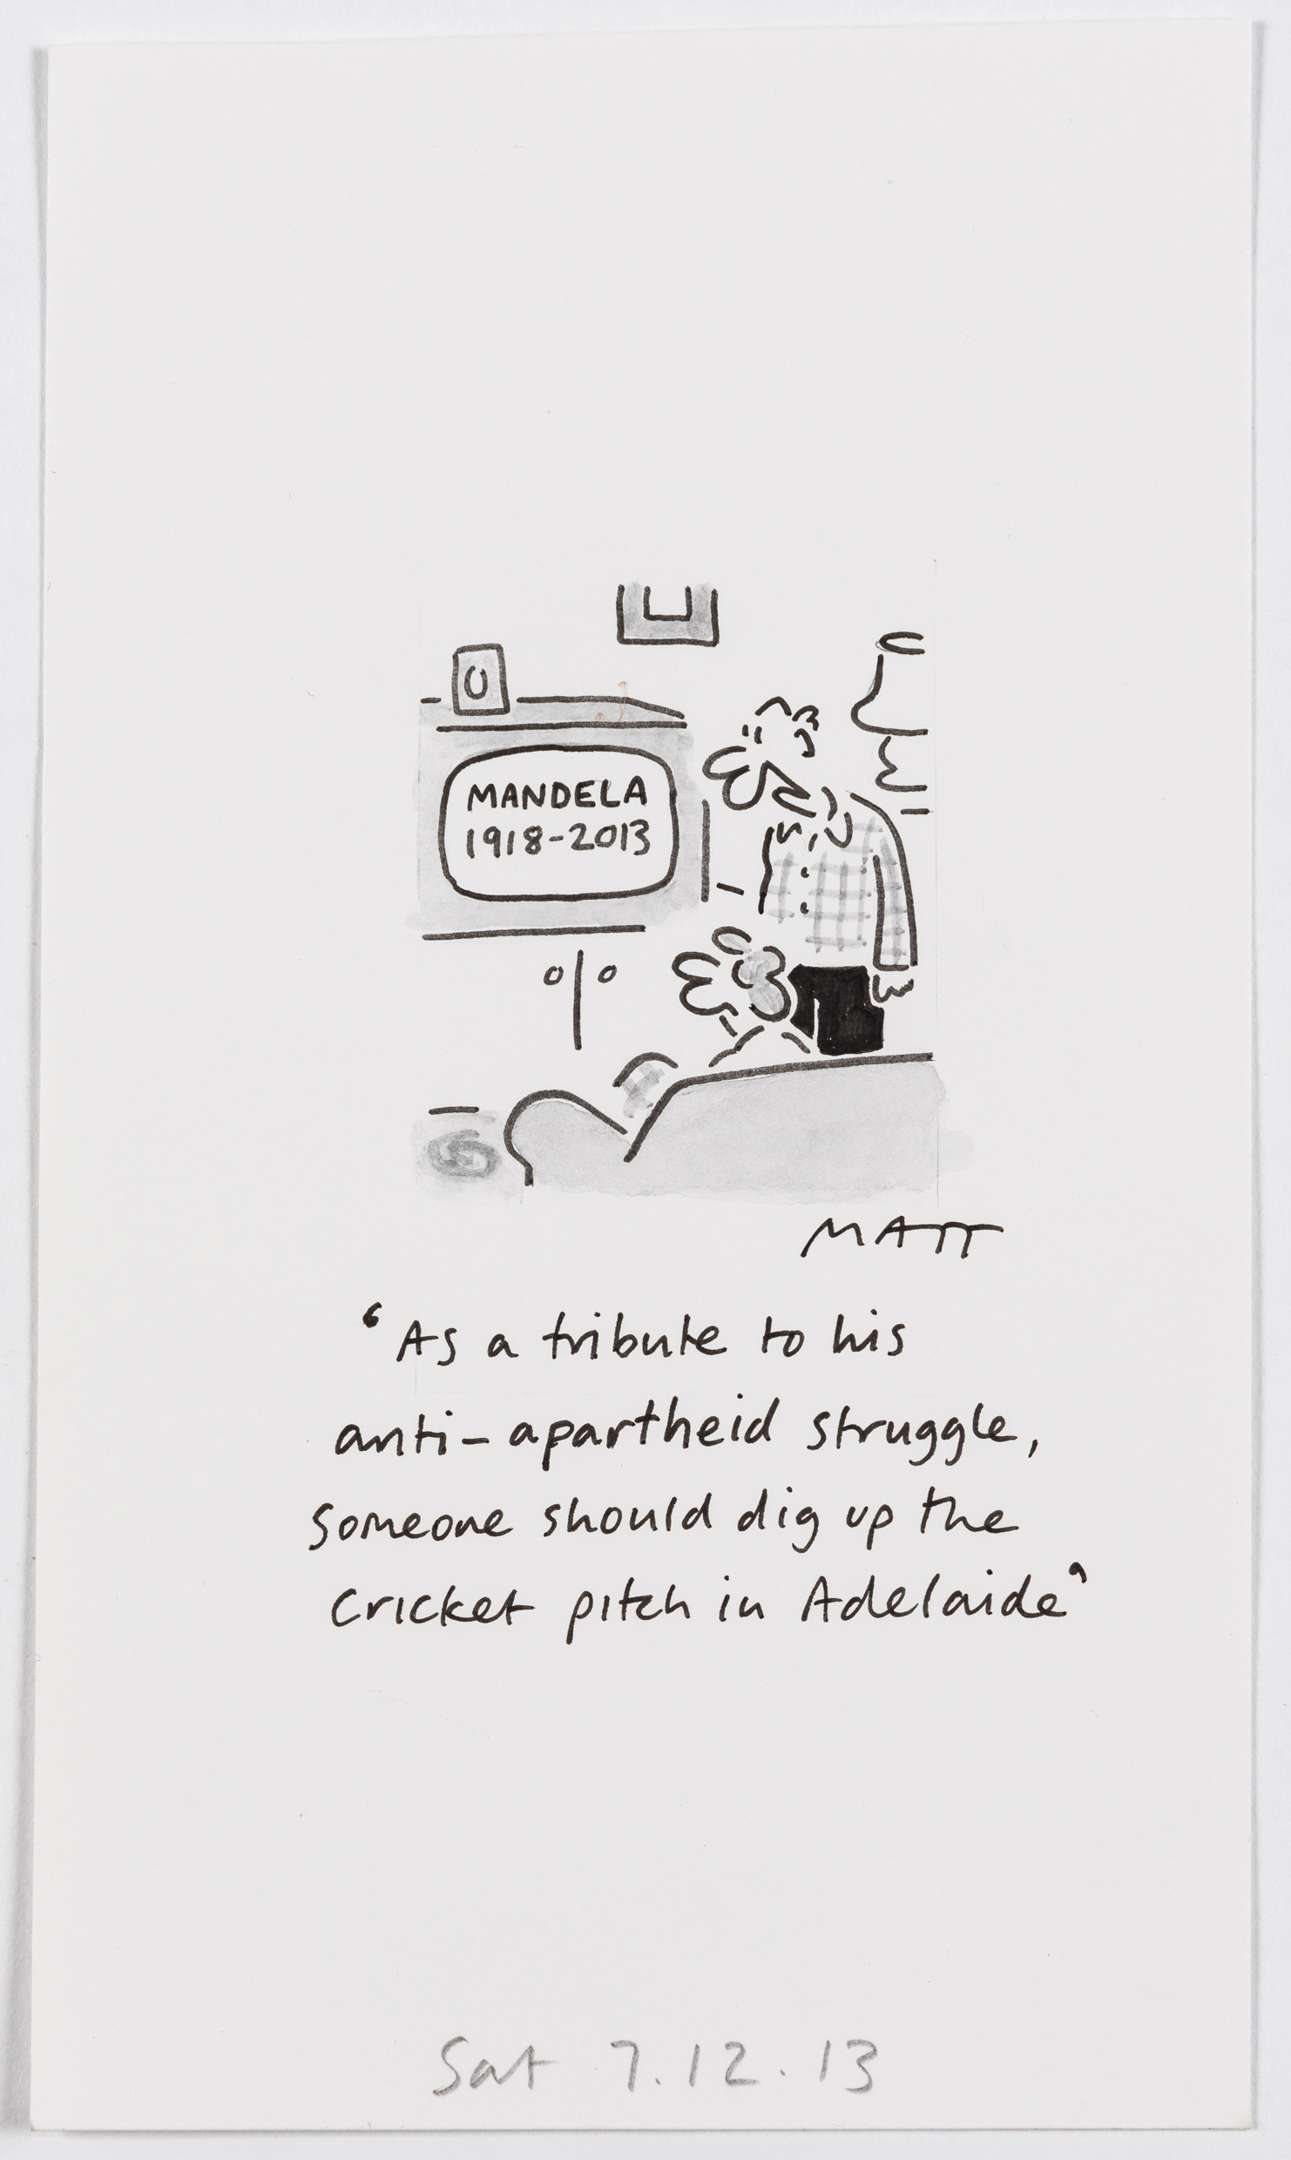 MANDELA
1918-2013
MATT
‘As a tribute to his
anti-apartheid struggle,
someone should dig up the
cricket pitch in Adelaide’
Sat 7.12.13